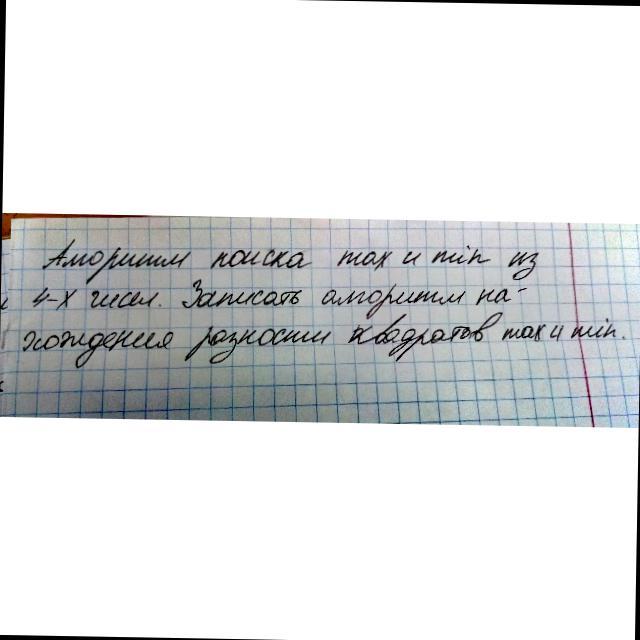 Алгоритм поиска max и min из
4-х чисел. Записать алгоритм на-
хождения разности квадратов max и min.